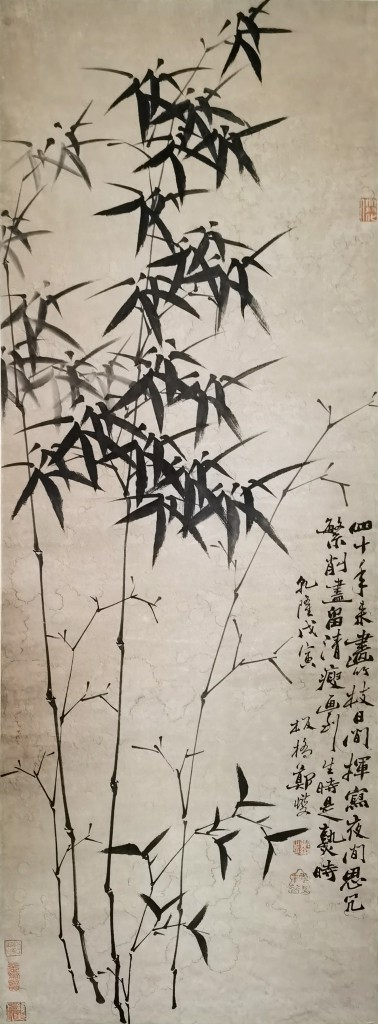 四十年来畫竹枝日間揮寫夜間思冗
繁削盡留清瘦画到生時是熟時
乾隆戊寅
板橋鄭燮